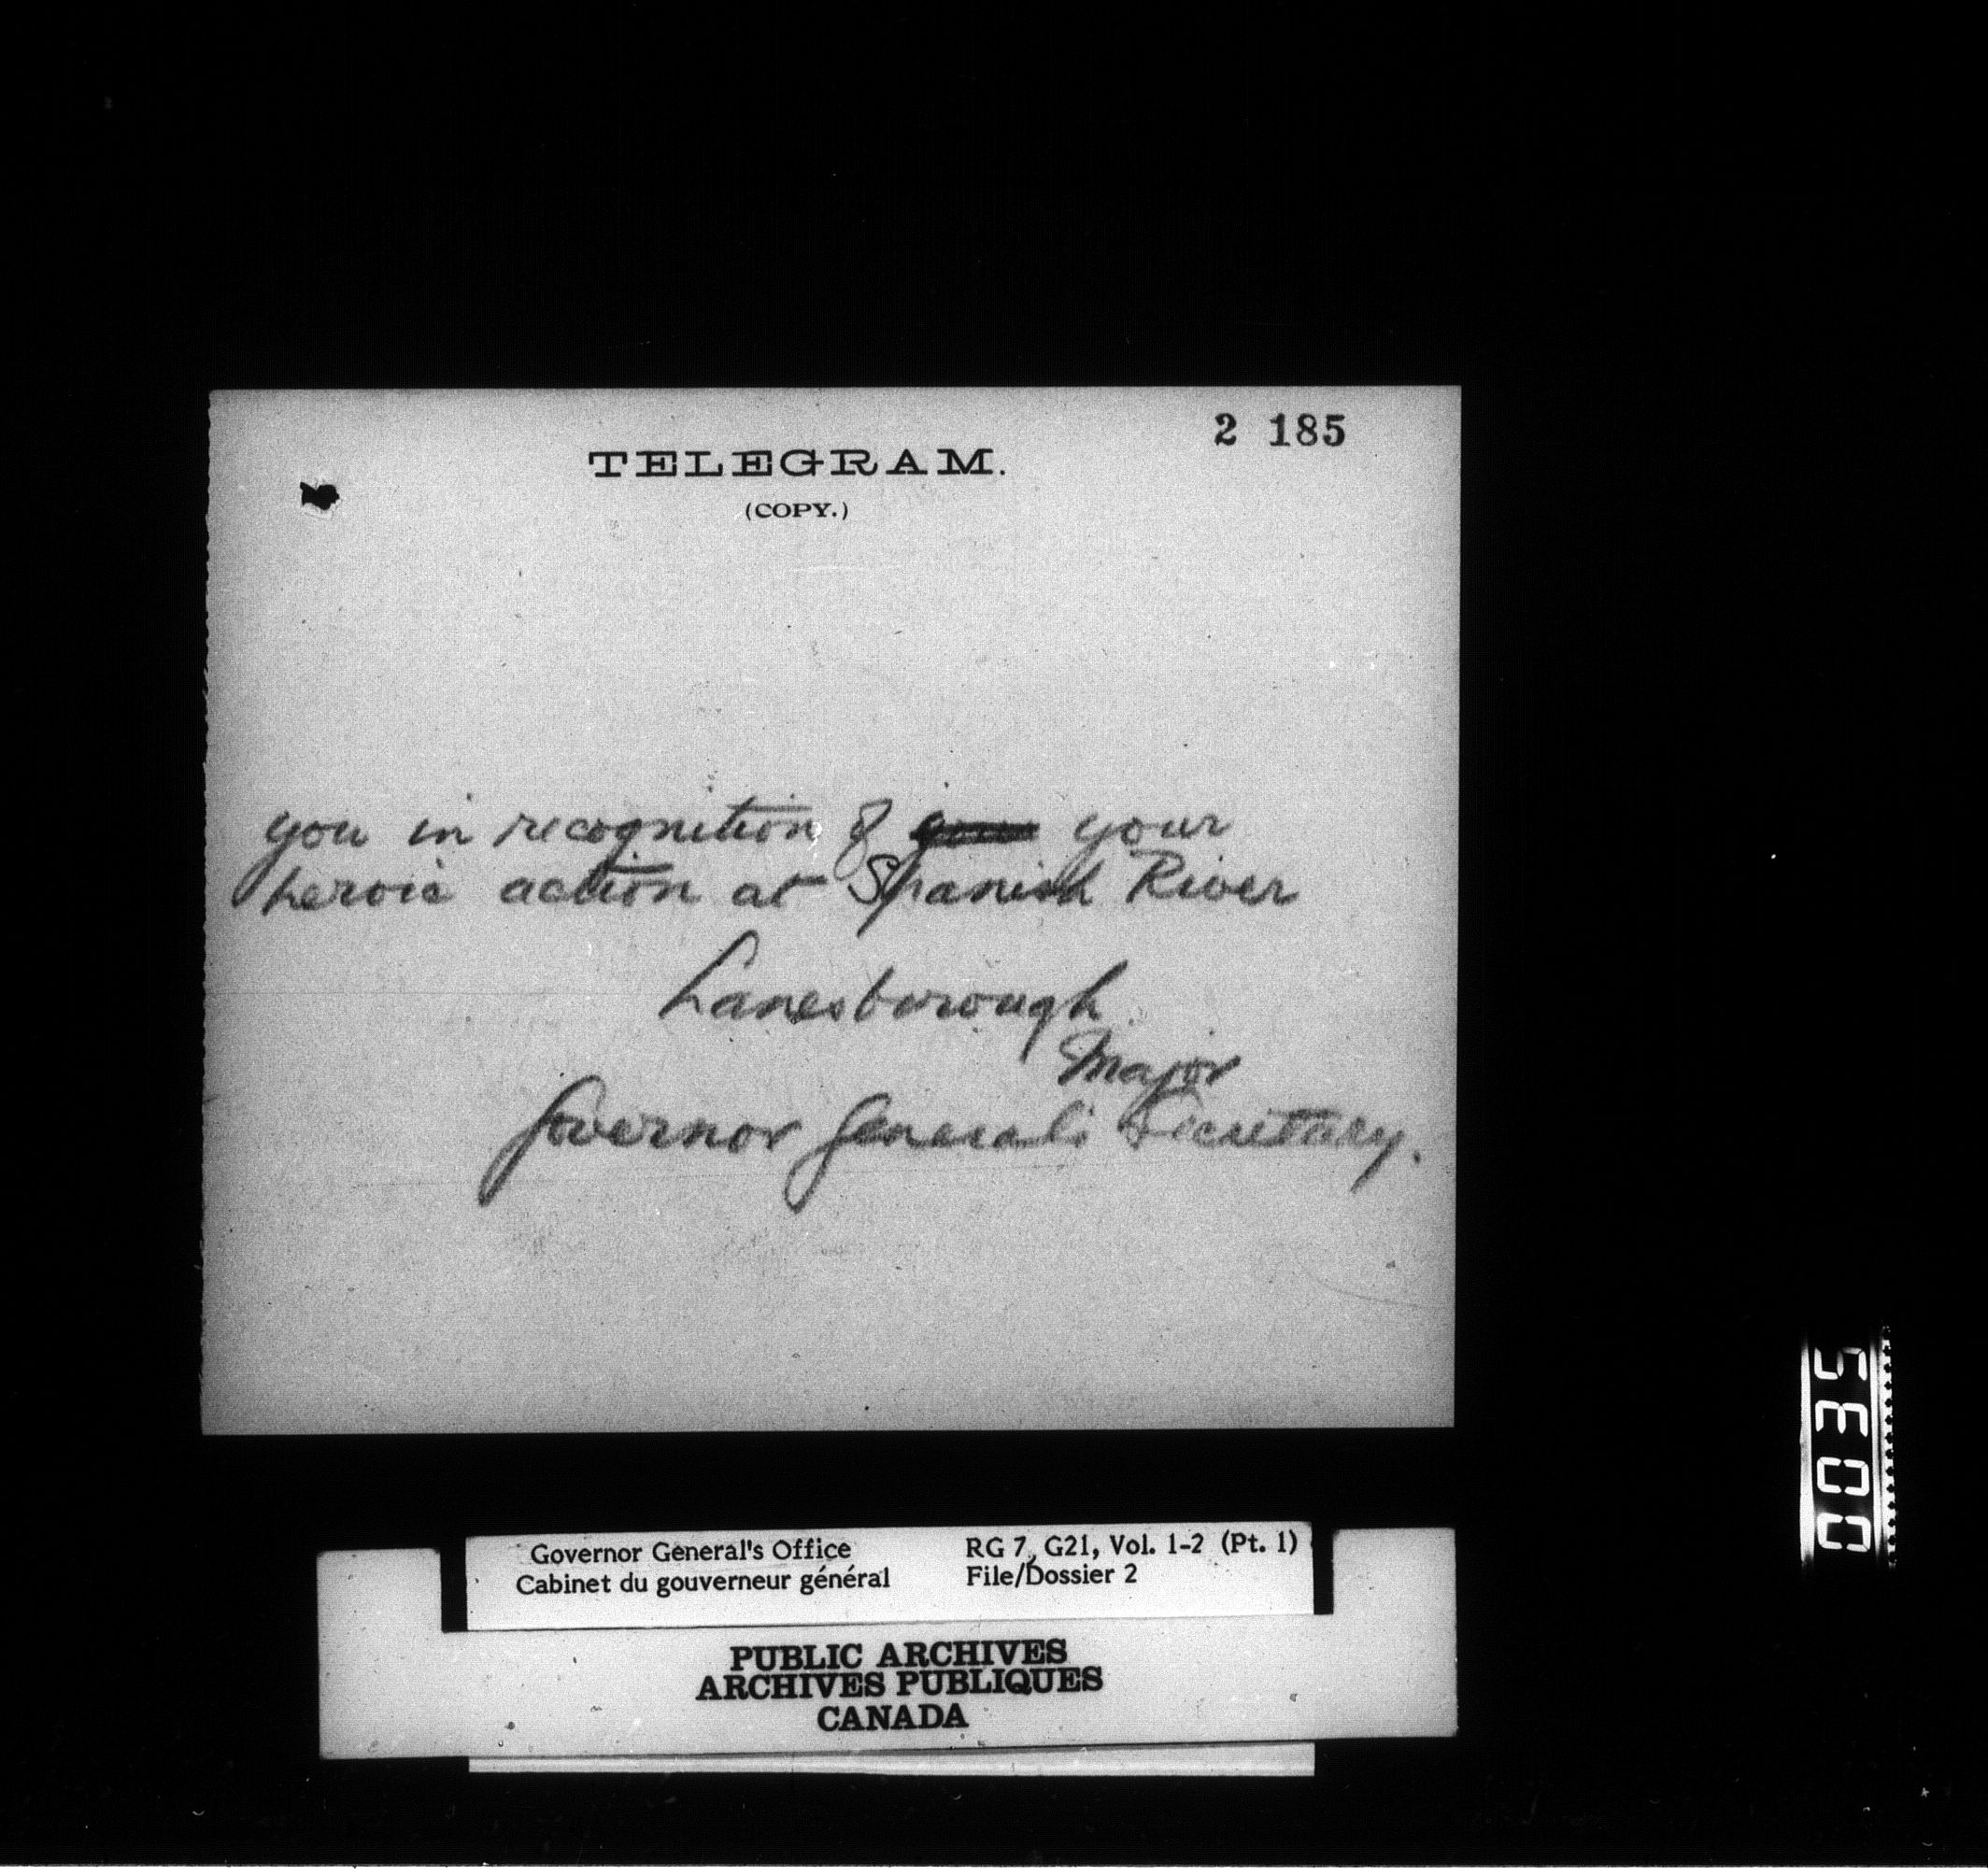 2 185
TELEGRAM.
(COPY.)
you in recognition of your
heroic action at Spanish River
Lanesborough
Major
Governor General's Secretary.
Governor General's Office RG 7, G21, Vol. 1-2 (Pt. 1)
Cabinet du gouverneur général File/Dossier 2
PUBLIC ARCHIVES
ARCHIVES PUBLIQUES
CANADA
0035